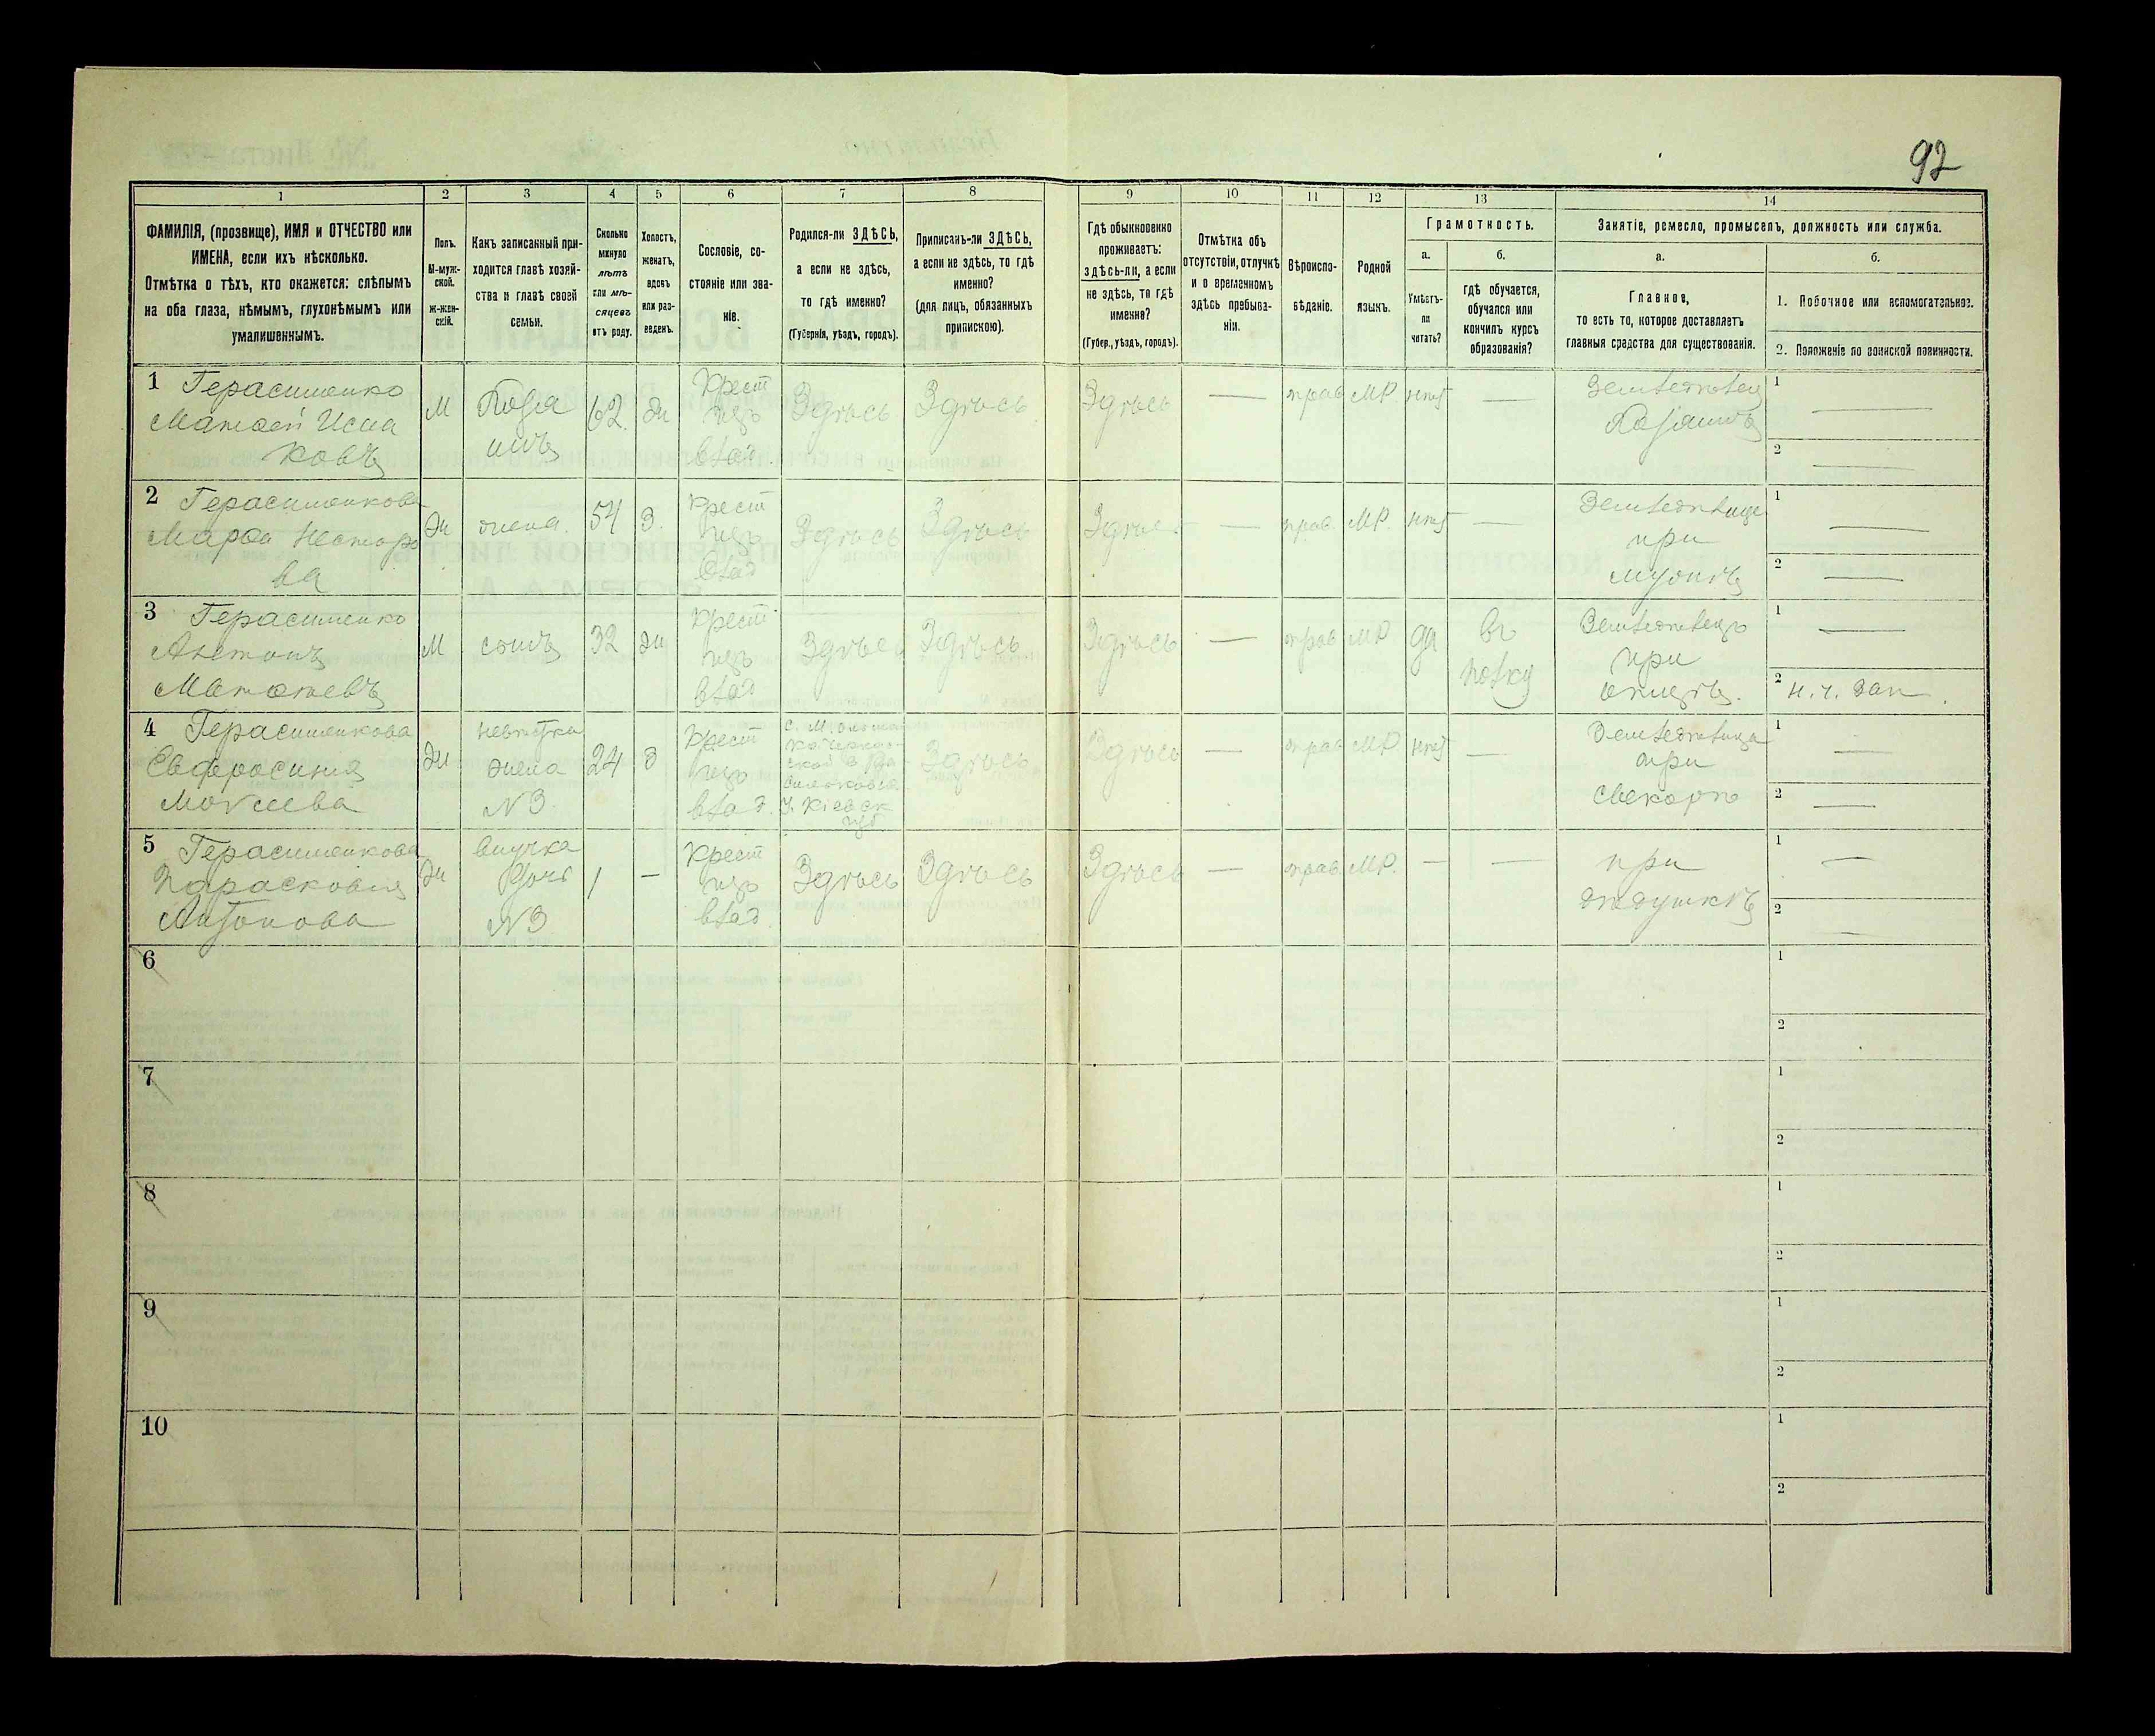 92
1
2
3
4
5
6
7
8
9
10
11
12
13
14
ФАМИЛІЯ, (прозвище), ИМЯ и ОТЧЕСТВО или
ИМЕНА, если ихъ нѣсколько.
Отмѣтка о тѣхъ, кто окажется: слѣпымъ
на оба глаза, нѣмымъ, глухонѣмымъ или
умалишеннымъ.
Полъ.
М-муж-
ской.
ж-жен-
скій.
Какъ записанный при-
ходится главѣ хозяй-
ства и главѣ своей
семьи.
Сколько
минуло
лѣтъ
или мѣ-
сяцевъ
отъ роду.
Холостъ,
женатъ,
вдовъ
или раз-
веденъ.
Сословіе, со-
стояніе или зва-
ніе.
Родился-ли ЗДѢСЬ,
а если не здѣсь,
то гдѣ именно?
(Губернія, уѣздъ, городъ).
Приписанъ-ли ЗДѢСЬ,
а если не здѣсь, то гдѣ
именно?
(для лицъ, обязанныхъ
припискою).
Гдѣ обыкновенно
проживаетъ:
здѣсь-ли, а если
не здѣсь, то гдѣ
именно?
(Губер., уѣздъ, городъ).
Отмѣтка объ
отсутствіи, отлучкѣ
и о временномъ
здѣсь пребыва-
ніи.
Вѣроиспо-
вѣданіе.
Родной
языкъ.
Грамотность.
а.
Умѣетъ-
ли
читать?
б.
гдѣ обучается,
обучался или
кончилъ курсъ
образованія?
Занятіе, ремесло, промыселъ, должность или служба.
а.
Главное,
то есть то, которое доставляетъ
главныя средства для существованія.
б.
1. Побочное или вспомогательное.
2. Положеніе по воинской повинности.
1 Герасименко
Матвѣй Исаа
ковъ
М
Хозя
инъ
62.
Ж
Крест
изъ
влад.
Здѣсь
Здѣсь
Здѣсь
—
прав
МР.
нѣт
—
Земледѣлец
Хозяинъ
1 —
2 —
2 Герасименкова
Марѳа Несторо
ва
Ж
жена.
54
З.
Крест
изъ
влад
Здѣсь
Здѣсь
—
прав.
МР.
нѣт
—
Земледѣлица
при
мужѣ
1 —
2 —
3 Герасименко
Антонъ
Матвѣевъ
М
сынъ
32
Ж
Крест
изъ
влад
Здѣсь
Здѣсь
Здѣсь
—
прав
МР
да
Въ
полку
Земледѣлецъ
при
отцѣ.
1 —
2 н. ч. зап.
4 Герасименкова
Евфросинія
Мокіева
Ж
невѣстка
жена
N 3.
24
З
Крест
изъ
влад.
У. Кіевск
губ.
Здѣсь
Здѣсь
—
прав
МР
нѣт
—
Земледѣлица
при
свекорѣ
1 —
2 —
5 Герасименкова
Парасковія
Антонова
Ж
внучка
дочь
N 3
1
—
Крест
изъ
влад.
Здѣсь
Здѣсь
Здѣсь
—
прав.
МР.
—
—
при
дѣдушкѣ
1 —
2 —
6
1
2
7
1
2
8
1
2
9
1
2
10
1
2